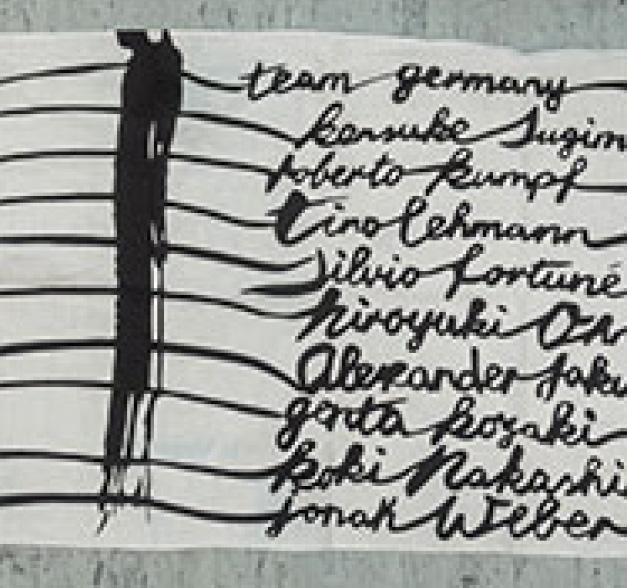 team germany
kensuke Sugim
roberto kumpf
tino lehmann
silvio fortune
hiroyuki
Alexander Jaku
genta kozaki
koki Nakashi
jonah Weber